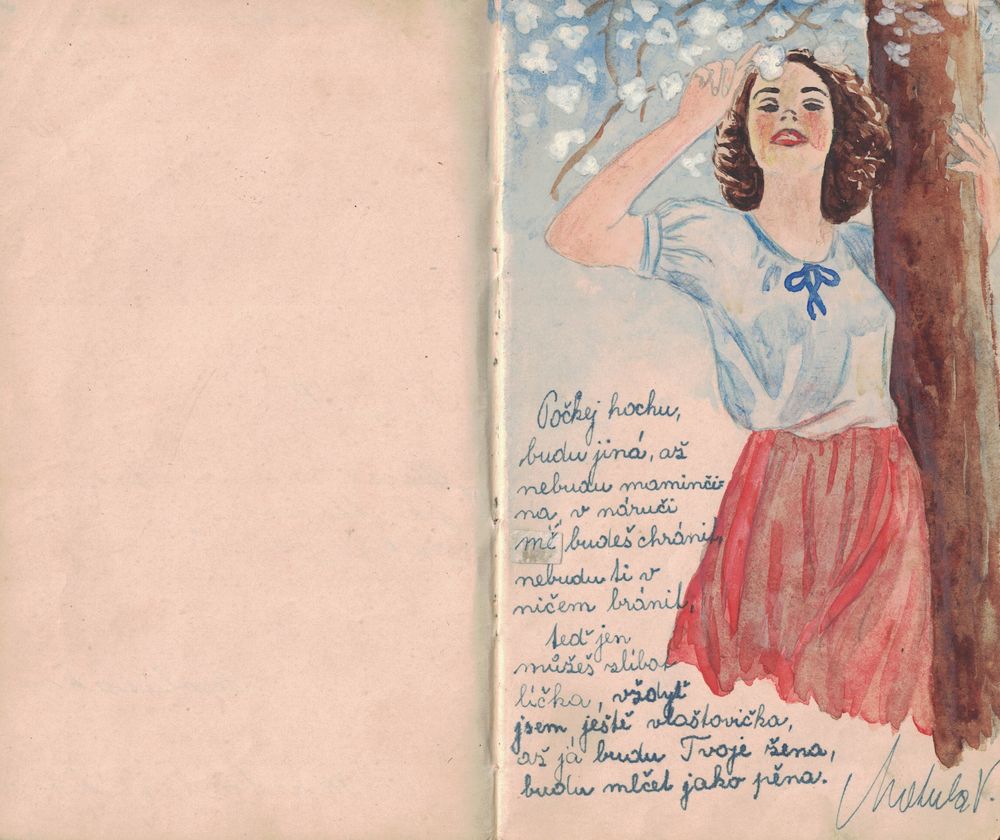 Počkej hochu,
budu jiná, až
nebudu maminči=
na, v náruči
mě budeš chránit,
nebudu ti v
ničem bránit,
teď jen
můžeš zlíbat
líčka, vždyť
jsem ještě vlaštovička,
až já budu Tvoje žena,
budu mlčet jako pěna.